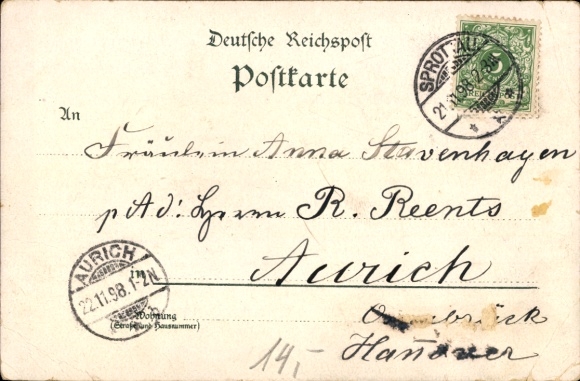 Deutsche Reichspost
Postkarte
SPROTTAU
21.11.98.2-3N
An
Fräulein Anna Stavenhagen
p Ad: Herrn R. Reents
AURICH
22.11.98.1-2N
in Aurich
Wohnung
(Straße und Hausnummer)
Osnabrück
Hannover
14,-